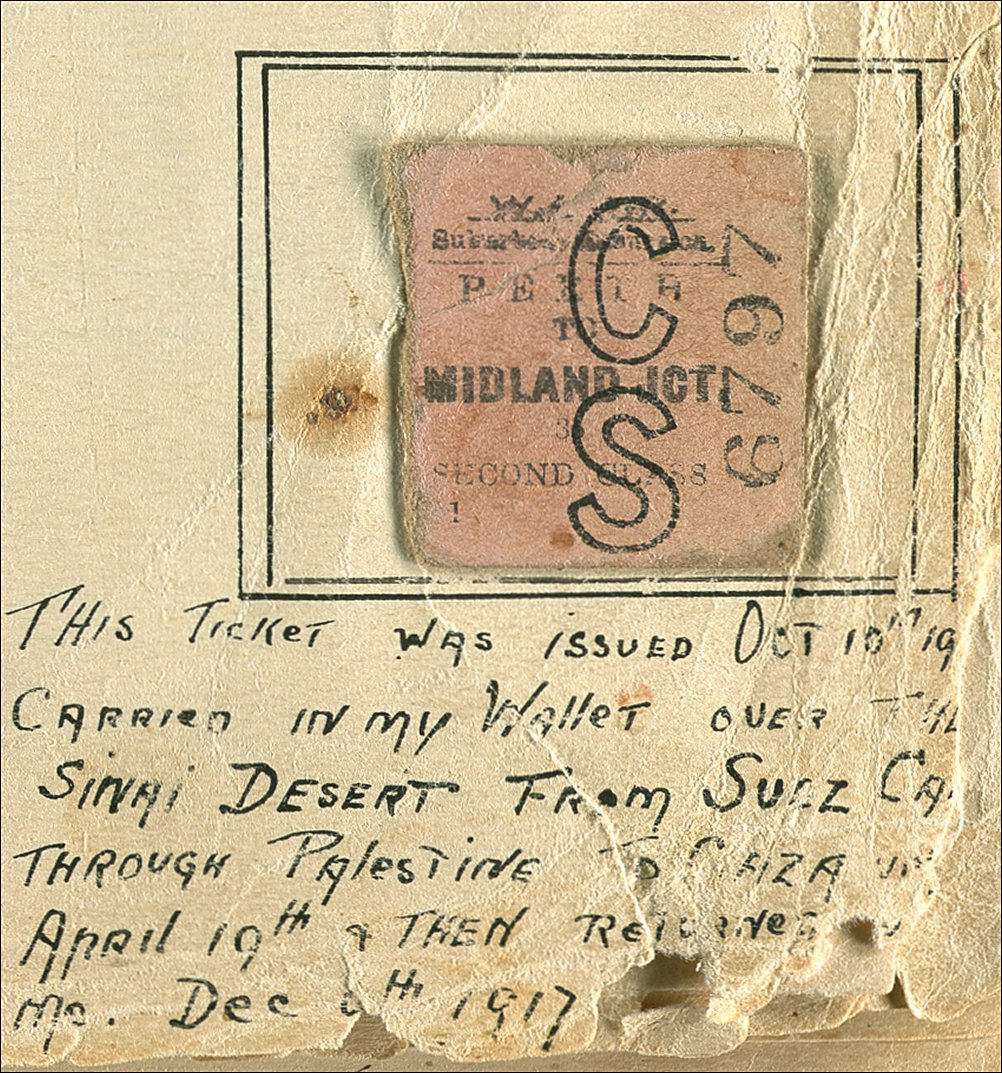 Suburban
PERTH
TO
MIDLAND JCT.
3
SECOND CLASS
1
C
S
6797
THIS TICKET WAS ISSUED OCT 10TH 19
CARRIED IN MY WALLET OVER THE
SINAI DESERT FROM SUEZ CA
THROUGH PALESTINE TO GAZA
APRIL 19TH & THEN RETURNED
Me. Dec 1917